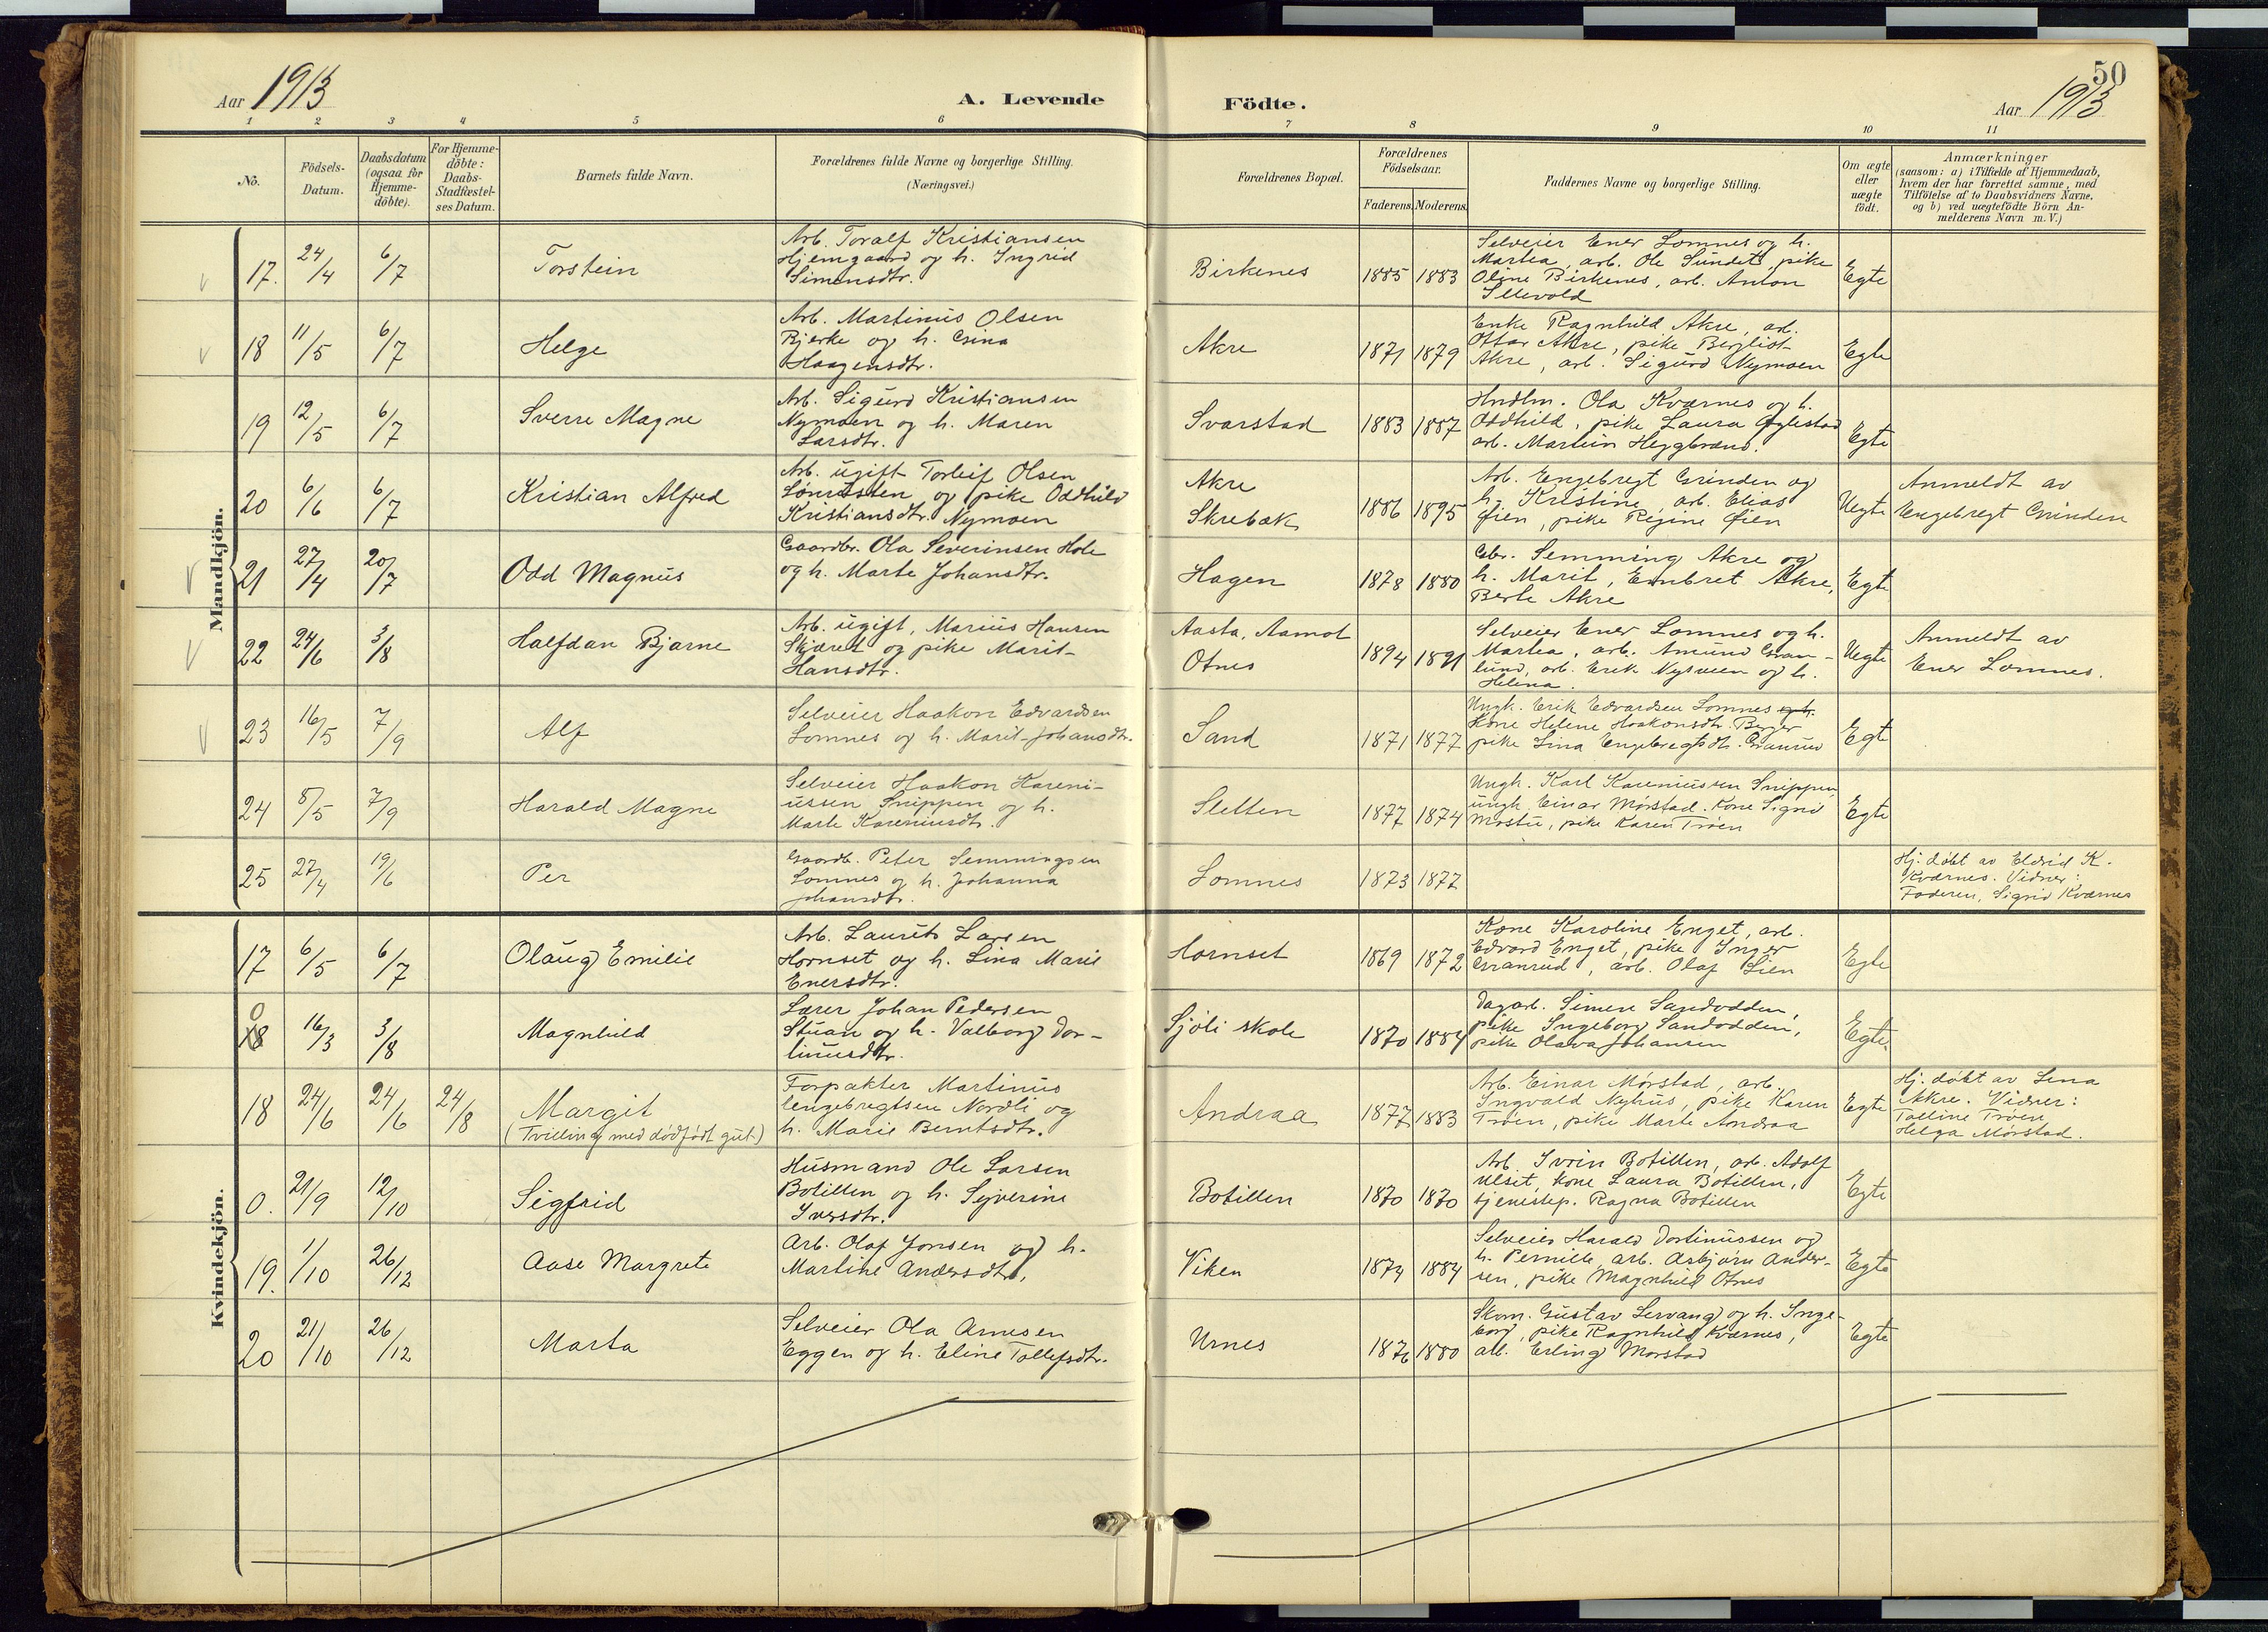 Aar 1913
A. Levende
Födte.
50
Aar 1913
1 2 3 4 5 6 7 8 9 10 11
No.
Födsels-
Datum.
Daabsdatum
(ogsaa for
Hjemme-
döbte).
For Hjemme-
döbte:
Daabs-
Stadfæstel-
ses Datum.
Barnets fulde Navn.
Forældrenes fulde Navne og borgerlige Stilling.
(Næringsvei.)
Forældrenes Bopæl.
Forældrenes
Födselsaar.
Faderens. Moderens.
Faddernes Navne og borgerlige Stilling.
Om ægte
eller
uægte
födt.
Anmærkninger
(saasom: a) i Tilfælde af Hjemmedaab,
hvem der har forrettet samme, med
Tilföielse af to Daabsvidners Navne,
og b) ved uægtefödte Börn An-
melderens Navn m. V.)
Mandkjön.
17. 24/4 6/7 Torstein
Arb. Toralf Kristiansen
Hjemgaard og h. Ingrid
Simensdtr.
Birkenes 1885 1883
Selveier Ener Lomnes og h.
Martea, arb. Ole Sundet, pike
Oline Birkenes, arb. Anton
Illevold
Egte
18 11/5 6/7 Helge
Arb. Martinus Olsen
Bjerke og h. Gina
Haagensdtr.
Akre 1871 1879
Enke Ragnhild Akre, arb.
Ottar Akre, pike Bergliot
Akre, arb. Sigurd Nymoen
Egte
19 12/5 6/7 Sverre Magne
Arb. Sigurd Kristiansen
Nymoen og h. Maren
Larsdtr.
Svarstad 1883 1887
Hndlm. Ola Kværnes og h.
Oddhild, pike Laura
arb. Martin Heggbrænd.
Egte
20 6/6 6/7 Kristian Alfred
Arb. ugift Torleif Olsen
og pike Oddhild
Kristiansdtr. Nymoen
Akre
Skrebæk
1886 1895
Arb. Engebregt Grinden og
h. Kristine, arb. Elias
Øien, pike Regine Øien
Uegte
Anmeldt av
Engebregt Grinden
21 27/4 20/7 Odd Magnus
Gaardbr. Ola Severinsen Hole
og h. Marte Johansdtr.
Hagen 1878 1880
Gbr. Semming Akre og
h. Marit, Embret Akre,
Berte Akre
Egte
22 24/6 3/8 Halfdan Bjarne
Arb. ugift, Marius Hansen
Skjæret og pike Marit
Hansdtr.
Aasta, Aamot
Otnes
1894 1891
Selveier Ener Lomnes og h.
Martea, arb. Amund Gran-
lund, arb. Erik Nysveen og h.
Helena.
Uegte
Anmeldt av
Ener Lomnes.
23 16/5 7/9 Alf
Selveier Haakon Edvardsen
Lomnes og h. Marit Johansdtr.
Sand 1871 1877
Ungk. Erik Edvardsen Lomnes og h.
Kone Helene Haakonsdtr. Berger
pike Lina Engebregtsdtr. Granrud
Egte
24 8/5 7/9 Harald Magne
Selveier Haakon Kareni-
ussen Snippen og h.
Marte Kareniusdtr.
Sletten 1877 1874
Ungk. Karl Kareniussen Snippen,
ungk. Einar Mørstad. Kone Signe
Mostu, pike Karen Trøen
Egte
25 27/4 19/6 Per
Gaardb. Peter Semmingsen
Lomnes og h. Johanna
Johansdtr.
Lomnes 1873 1877
Hj. døbt av Eldrid K.
Kværnes. Vidner:
Faderen, Sigrid Kværnes
Kvindekjön.
17 6/5 6/7 Olaug Emilie
Arb. Laurits Larsen
Hornset og h. Lina Marie
Enersdtr.
Hornset 1869 1872
Kone Karoline Enget, arb.
Edvard Enget, pike Inger
Granrud, arb. Olaf Lien
Egte
0
18 16/3 3/8 Magnhild
Lærer Johan Pedersen
Stuan og h. Valborg Dor-
tinusdtr.
Sjøli skole 1870 1884
Dagarb. Simen Sandodden,
pike Ingeborg Sandodden,
pike Olava Johansen
Egte.
18 24/6 24/6 24/8 Margit
(Tvilling med dødfødt gut.)
Forpakter Martinus
Engebregtsen Nordli og
h. Marie Berntsdtr.
Andraa 1877 1883
Arb. Einar Mørstad, arb.
Ingvald Nyhus, pike Karen
Trøen, pike Marte Andraa
Egte
Hj. døbt av Lena
Akre. Vidner:
Talline Trøen
Helga Mørstad.
0. 21/9 12/10 Sigfrid
Husmand Ole Larsen
Botillen og h. Syverine
Iversdtr.
Botillen 1870 1870
Arb. Ivrin Botillen, arb. Adolf
Ulset, kone Laura Botillen,
tjenestep. Ragna Botillen
Egte
19. 1/10 26/12 Aase Margrete
Arb. Olaf Jonsen og h.
Martine Andersdtr.
Viken 1874 1884
Selveier Harald Dortinussen og
h. Pernille, arb. Asbjørn Ander-
sen, pike Magnhild Otnes
Egte
20 21/10 26/12 Marta
Selveier Ola Arnesen
Eggen og h. Eline Tollefsdtr.
Urnes 1876 1880
Skom. Gustav Lervang og h. Inge-
borg, pike Ragnhild Kværnes,
arb. Erling Mørstad
Egte